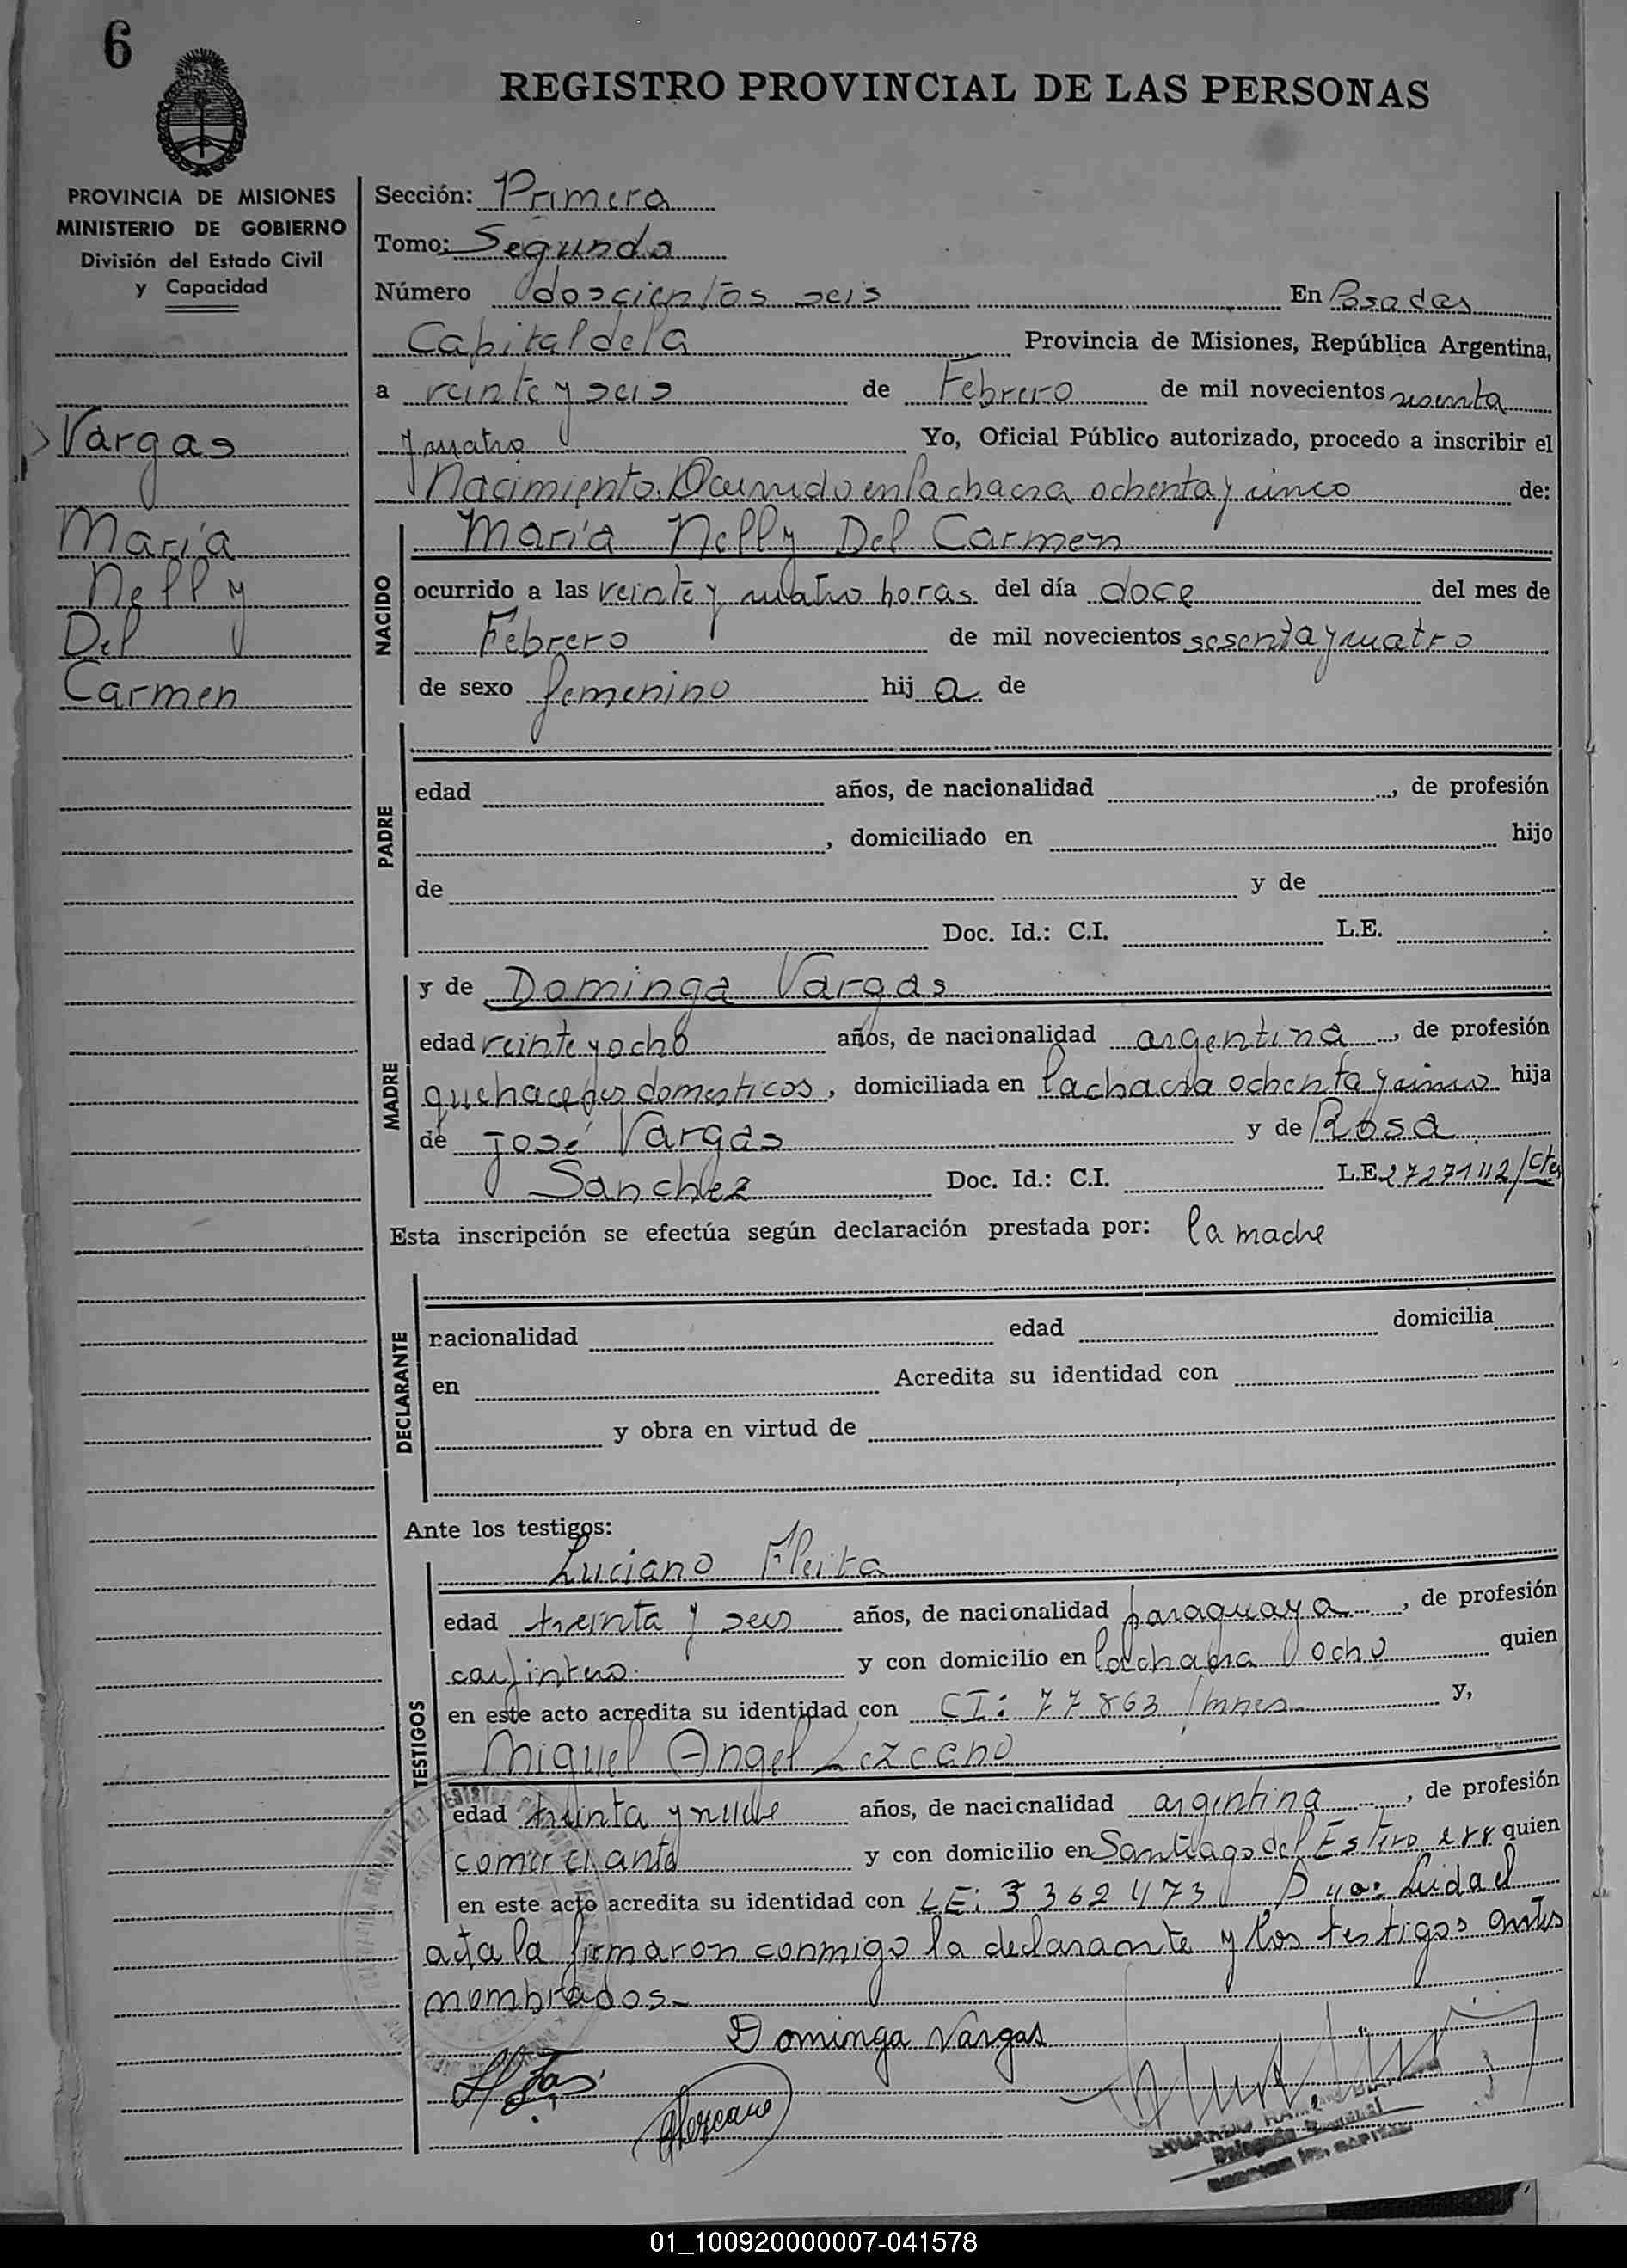 6
REGISTRO PROVINCIAL DE LAS PERSONAS
PROVINCIA DE MISIONES
MINISTERIO DE GOBIERNO
División del Estado Civil
y Capacidad
Vargas
María
Nelly
Del
Carmen
Sección: Primera
Tomo: Segundo
Número doscientos seis En Posadas
Capital de la Provincia de Misiones, República Argentina,
a veinte y seis de Febrero de mil novecientos sesenta
y cuatro Yo, Oficial Público autorizado, procedo a inscribir el
Nacimiento. Ocurrido en la chacra ochenta y cinco de:
NACIDO
María Nelly Del Carmen
ocurrido a las veinte y cuatro horas del día doce del mes de
Febrero de mil novecientos sesenta y cuatro
de sexo femenino hij a de
PADRE
edad años, de nacionalidad , de profesión
, domiciliado en hijo
de y de
Doc. Id.: C.I. L.E.
MADRE
y de Dominga Vargas
edad veinte y ocho años, de nacionalidad argentina , de profesión
quehaceres domesticos, domiciliada en la chacra ochenta y cinco hija
de José Vargas y de Rosa
Sanchez Doc. Id.: C.I. L.E. 2727142/Ctes
Esta inscripción se efectúa según declaración prestada por: la madre
DECLARANTE
nacionalidad edad domicilia
en Acredita su identidad con
y obra en virtud de
Ante los testigos:
TESTIGOS
Luciano Fleita
edad treinta y seis años, de nacionalidad paraguaya , de profesión
carpintero y con domicilio en la chacra ocho quien
en este acto acredita su identidad con CI: 77863 /mnes y,
Miguel Angel Lezcano
edad treinta y nueve años, de nacionalidad argentina , de profesión
comerciante y con domicilio en Santiago del Estero 288 quien
en este acto acredita su identidad con LE: 3362473 Leida el
acta la firmaron conmigo la declarante y los testigos antes
nombrados.-
Dominga Vargas
Lezcano
01_100920000007-041578